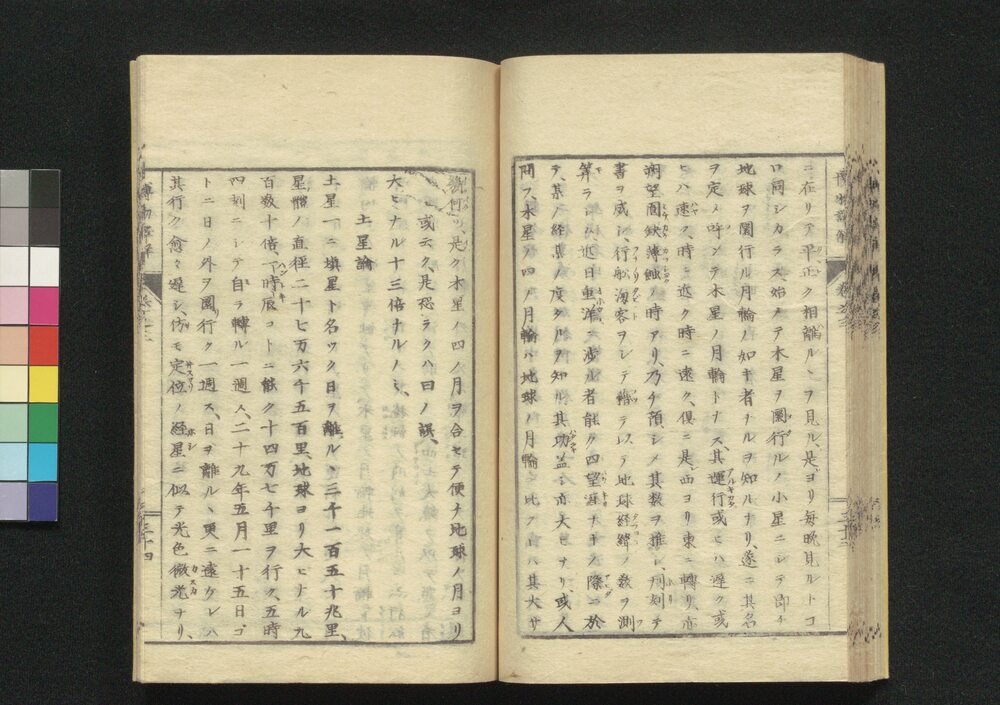 ニ在リテ平正ク相離ルヽヲ見ル、是ヨリ毎晩見ルトコ
ロ同シカラス始メテ木星ヲ圍行ルノ小星ニシテ即チ
地球ヲ圍行ル月輪ノ如キ者ナルヲ知ルナリ、遂ニ其名
ヲ定メ呼ンテ木星ノ月輪トナス、其運行或ヒハ遅ク或
ヒハ速ク、時ニ近ク時ニ遠ク、俱ニ是レ西ヨリ東ニ轉リ、亦
朔望圓缺薄蝕ノ時アリ、乃チ預シメ其数ヲ推シ、刊刻テ
書ヲ成シ、行船海客ヲシテ帶テ以テ地球経緯ノ数ヲ測
算ラシム近日重洋ニ渉ル者能ク四望涯ナキノ際ニ於
テ、某ノ経某ノ度タルヲ知ル其功益シ亦大ヒナリ、或人
問フ、木星ノ四ノ月輪ハ地球ノ月輪ニ比フレハ其大サ
幾何ソ、是ク木星ノ四ノ月ヲ合セテ便チ地球ノ月ヨリ
或云ク、是恐ラクハ曰ノ誤
大ヒナル十三倍ナルノミ、
土星論
土星一ニ塡星ト名ツク日ヲ離ルヽ三千一百五十兆里、
星體ノ直徑二十七万六千五百里、地球ヨリ大ヒナル九
百数十倍、一時辰コトニ能ク十四万七千里ヲ行ク、五時
四刻ニシテ自ラ轉ル一週ス、二十九年五月一十五日ゴ
トニ日ノ外ヲ圍行ク一週ス、日ヲ離ルヽ更ニ遠ケレハ
其行ク愈々遅シ、彷モ定位ノ経星ニ似テ光色微光ナリ、
三十四